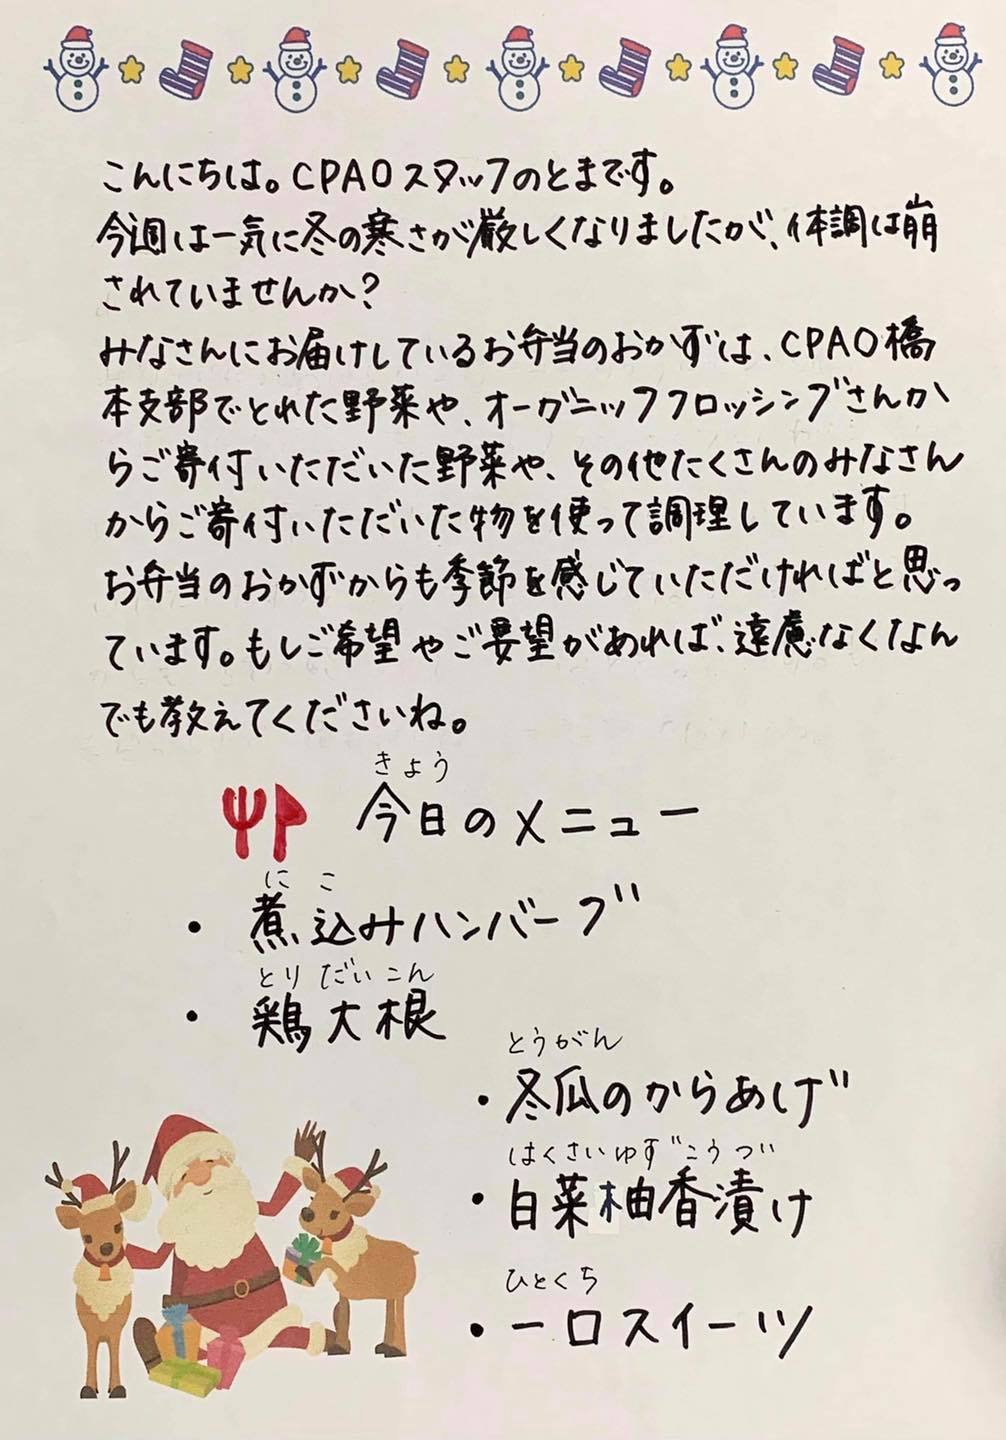 こんにちは。CPAOスタッフのとまです。
今週は一気に冬の寒さが厳しくなりましたが、体調は崩
されていませんか?
みなさんにお届けしているお弁当のおかずは、CPAO橋
本支部でとれた野菜や、オーガニッククロッシングさんか
らご寄付いただいた野菜や、その他たくさんのみなさん
からご寄付いただいた物を使って調理しています。
お弁当のおかずからも季節を感じていただければと思っ
ています。もしご希望やご要望があれば、遠慮なくなん
でも教えてくださいね。
きょう
今日のメニュー
にこ
・煮込みハンバーグ
とりだいこん
・鶏大根
とうがん
・冬瓜のからあげ
はくさいゆずこうづ
・白菜柚香漬け
ひとくち
・一口スイーツ